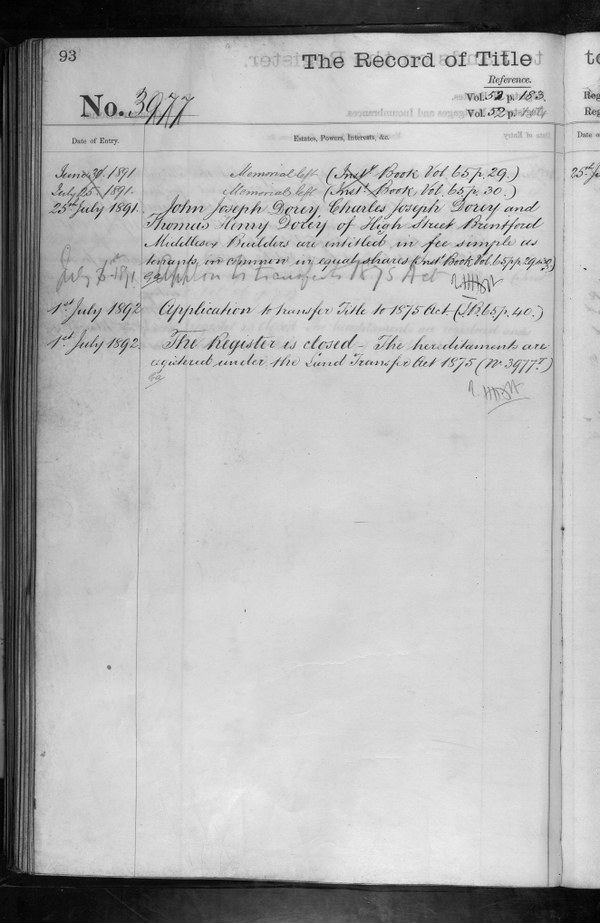 93
The Record of Title
Reference.
No. 3977
Vol. 52 p. 183.
Vol. 52 p.
Date of Entry.
Estates, Powers, Interests, &c.
June 30. 1891 Memorial left (Instt Book Vol. 65 p. 29.)
July 25. 1891. Memorial left (Inst. Book Vol. 65 p. 30.)
25th July 1891. John Joseph Dorey, Charles Joseph Dorey and
Thomas Henry Dorey of High Street Brentford
Middlesex Builders are entitled in fee simple as
tenants in common in equal shares (Inst Book Vol. 65 pp. 29 & 30)
July 1st 189 Appln to transfer to 1875 Act
1st July 1892 Application to transfer Title to 1875 Act (I.B. 65 p. 40.)
1st July 1892 The Register is closed - The hereditaments are
registered under the Land Transfer Act 1875 (No 3977)
25th J